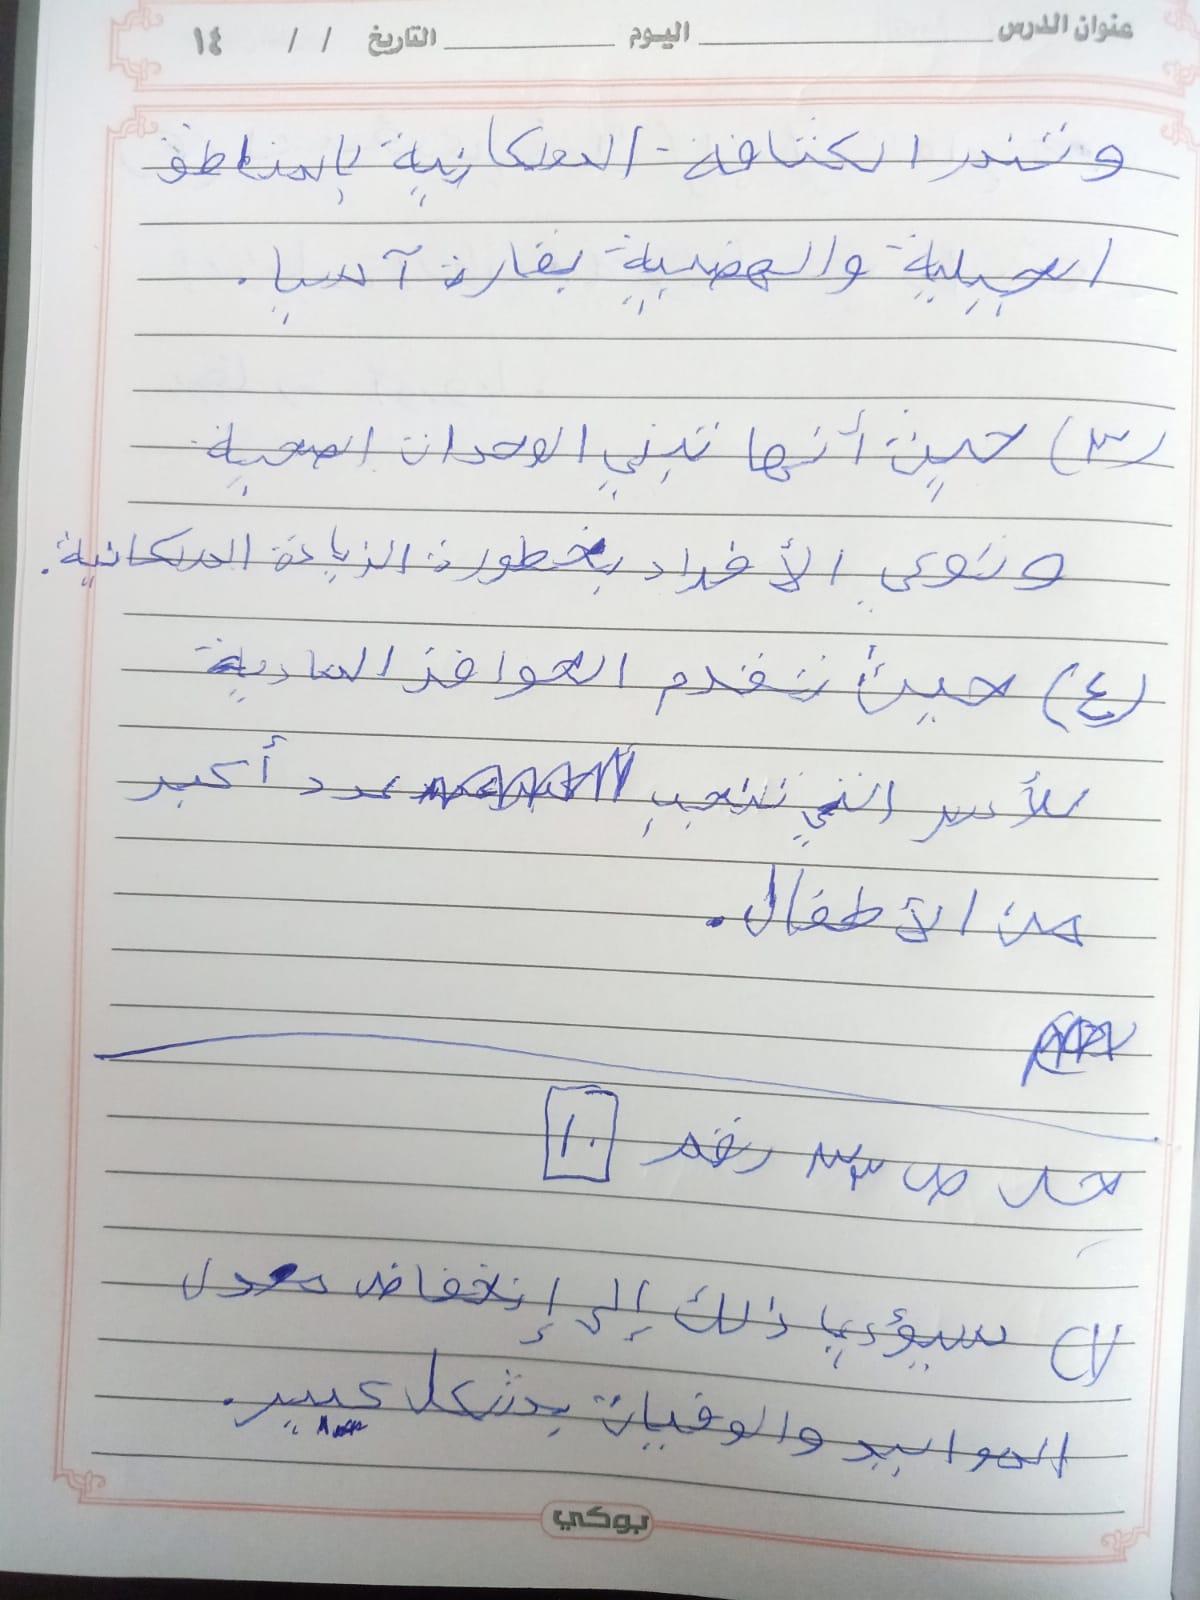 عنوان الدرس ـــــــ اليوم ـــــــ التاريخ / / ١٤
وتندر الكثافة السكانية بالمناطق
الجبلية والهضبية بقارة آسيا.
(٣) حيث أنها تبني الوحدات الصحية
وتوعي الأفراد بخطورة الزيادة السكانية.
(٤) حيث تقدم الحوافز المادية
للأسر التي تنجب عدد أكبر
من الأطفال.
حل ص ٣٣ رقم ١٠
١) سيؤدي ذلك إلى إنخفاض معدل
المواليد والوفيات بشكل كبير.
بوكي